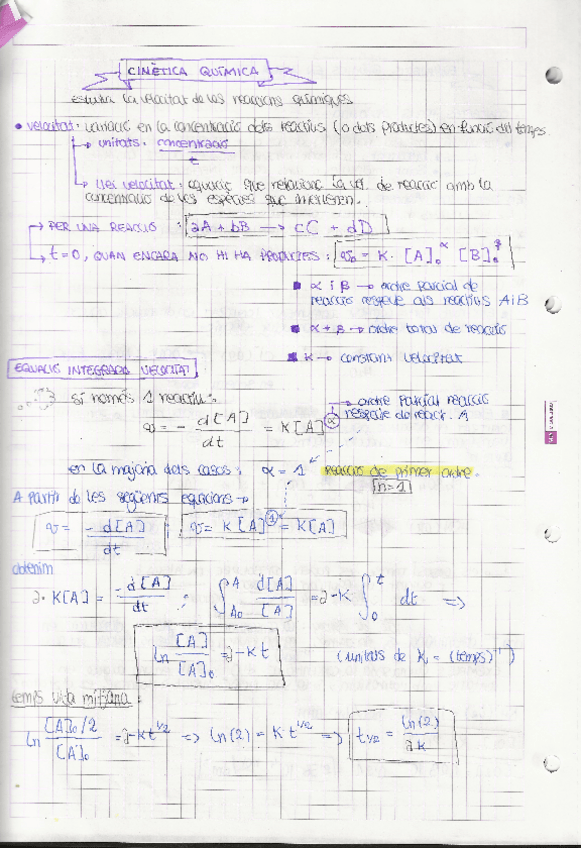 CINÈTICA QUÍMICA
estudia la velocitat de les reaccions químiques
• velocitat: variació en la concentració dels reactius (o dels productes) en funció del temps
→ unitats: concentració / t
→ llei velocitat: equació que relaciona la vel. de reacció amb la
concentració de les espècies que intervenen.
→ PER UNA REACCIÓ : aA + bB → cC + dD
→ t=0, QUAN ENCARA NO HI HA PRODUCTES : v₀ = K · [A]₀^α [B]₀^β
▪ α i β → ordre parcial de
reacció respecte als reactius A i B
▪ α + β → ordre total de reacció
▪ K → constant velocitat
EQUACIÓ INTEGRADA VELOCITAT
si només 1 reactiu:
→ ordre parcial reacció
respecte de react. A
v = - d[A] / dt = K[A]^α
en la majoria dels casos: α = 1 reacció de primer ordre.
n=1
A partir de les següents equacions →
v = -d[A] / dt ; v = K[A]^1 = K[A]
obtenim
a·K[A] = -d[A] / dt ; ∫_{A₀}^{A} d[A] / [A] = a-K ∫_0^t dt ⇒
ln [A] / [A]₀ = a-Kt (unitats de K = (temps)⁻¹)
temps vida mitjana:
ln [A]₀/2 / [A]₀ = a-Kt^1/2 ⇒ ln(2) = K t^1/2 ⇒ t_1/2 = ln(2) / aK